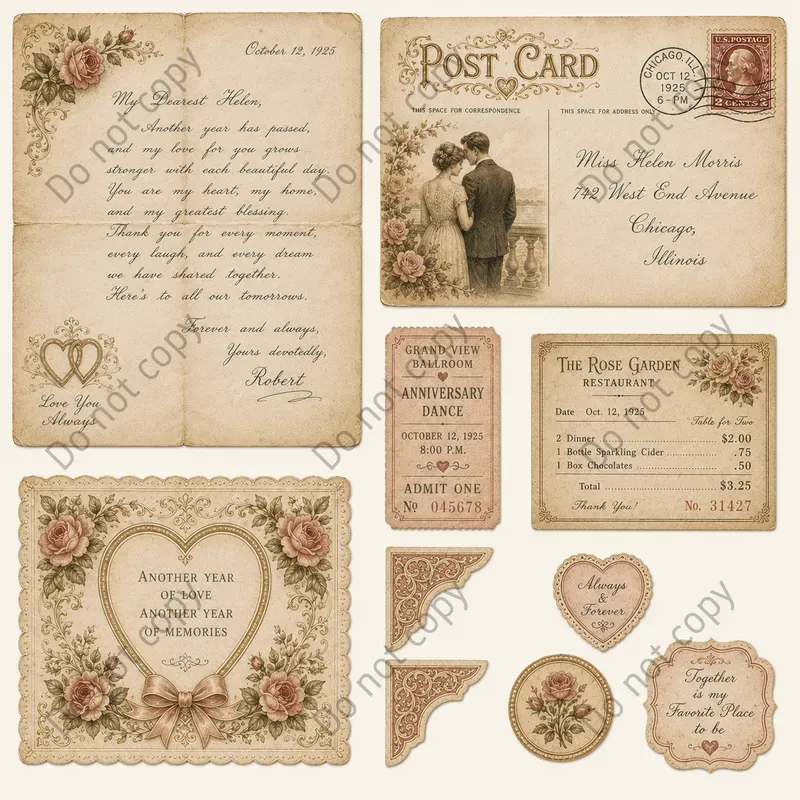 October 12, 1925
My Dearest Helen,
Another year has passed,
and my love for you grows
stronger with each beautiful day.
You are my heart, my home,
and my greatest blessing.
Thank you for every moment,
every laugh, and every dream
we have shared together.
Here's to all our tomorrows.
Forever and always,
Yours devotedly,
Robert
Love You
Always
POST CARD
THIS SPACE FOR CORRESPONDENCE
THIS SPACE FOR ADDRESS ONLY
CHICAGO, ILL.
OCT 12
1925
6 - PM
U.S. POSTAGE
2 CENTS 2
Miss Helen Morris
742 West End Avenue
Chicago,
Illinois
GRAND VIEW
BALLROOM
ANNIVERSARY
DANCE
OCTOBER 12, 1925
8:00 P.M.
ADMIT ONE
No 045678
THE ROSE GARDEN
RESTAURANT
Date Oct. 12, 1925
Table for Two
2 Dinner $2.00
1 Bottle Sparkling Cider .75
1 Box Chocolates .50
Total $3.25
Thank You! No. 31427
ANOTHER YEAR
OF LOVE
ANOTHER YEAR
OF MEMORIES
Always
&
Forever
Together
is my
Favorite Place
to be
Do not copy
Do not copy
Do not copy
Do not copy
Do not copy
Do not copy
Do not copy
Do not copy
Do not copy